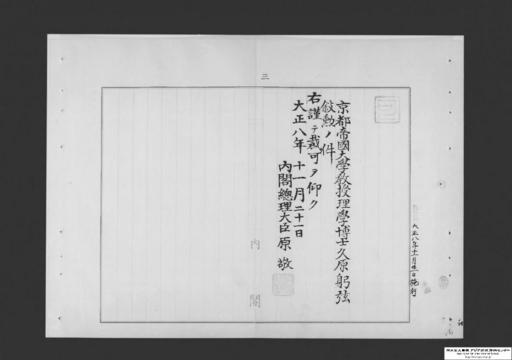 三
大正八年十一月廿一日施行
京都帝國大學教授理學博士久原躬弦
敍勲ノ件
右謹テ裁可ヲ仰ク
大正八年十一月二十一日
内閣總理大臣原敬
内閣